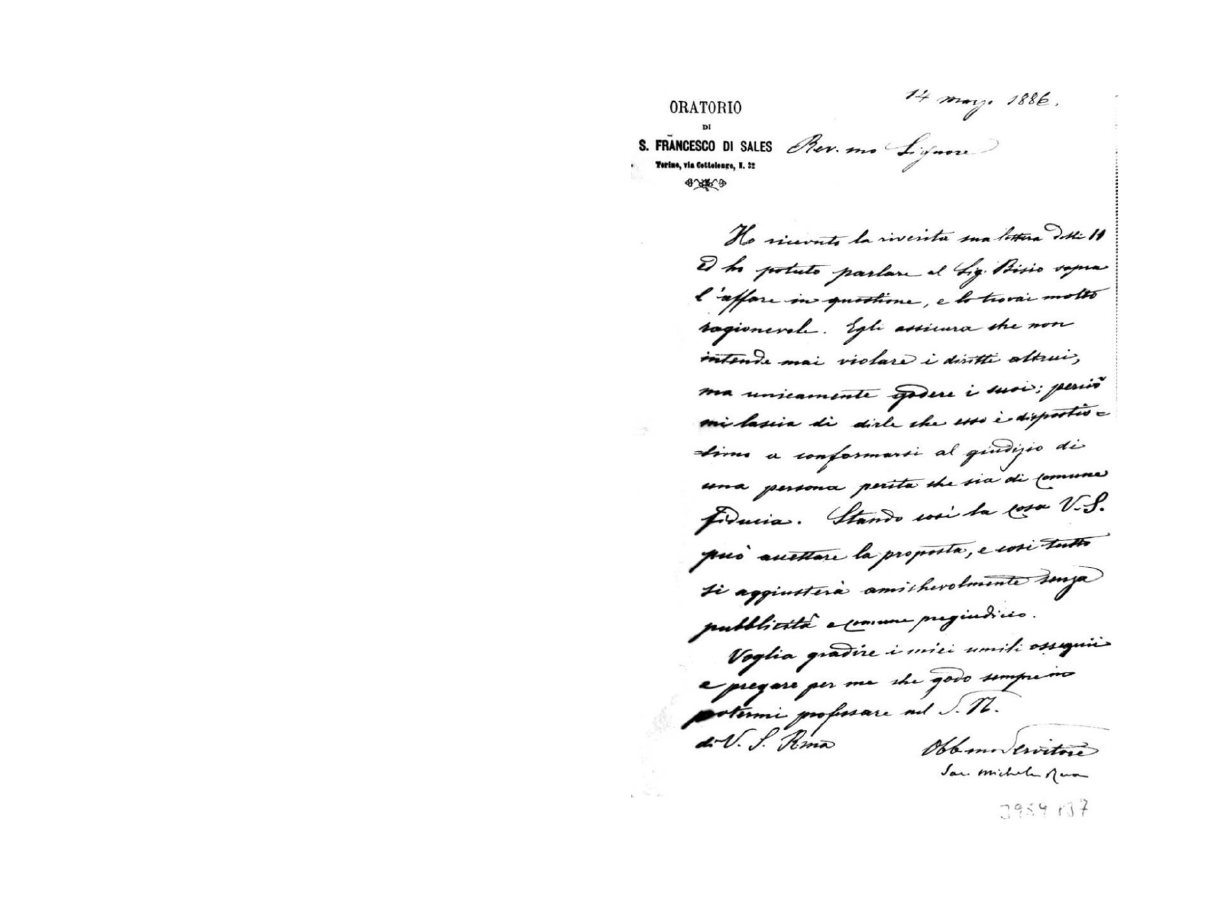 14 marzo 1886.
ORATORIO
DI
S. FRANCESCO DI SALES
Torino, via Cottolengo, N. 32
Rev.mo Signore
Ho ricevuto la riverita sua lettera delli 11
Ed ho potuto parlare al Sig. Bisio sopra
l'affare in questione, e lo trovai molto
ragionevole. Egli assicura che non
intende mai violare i diritti altrui,
ma unicamente godere i suoi; perciò
mi lascia di dirle che esso è dispostis=
=simo a conformarsi al giudizio di
una persona perita che sia di comune
fiducia. Stando così la cosa V. S.
può accettare la proposta, e così tutto
si aggiusterà amichevolmente senza
pubblicità e comune pregiudicio.
Voglia gradire i miei umili ossequii
e pregare per me che godo sempre in
potermi professare nel S. N.
di V. S. Rma
Obb.mo Servitore
Sac. Michele Rua